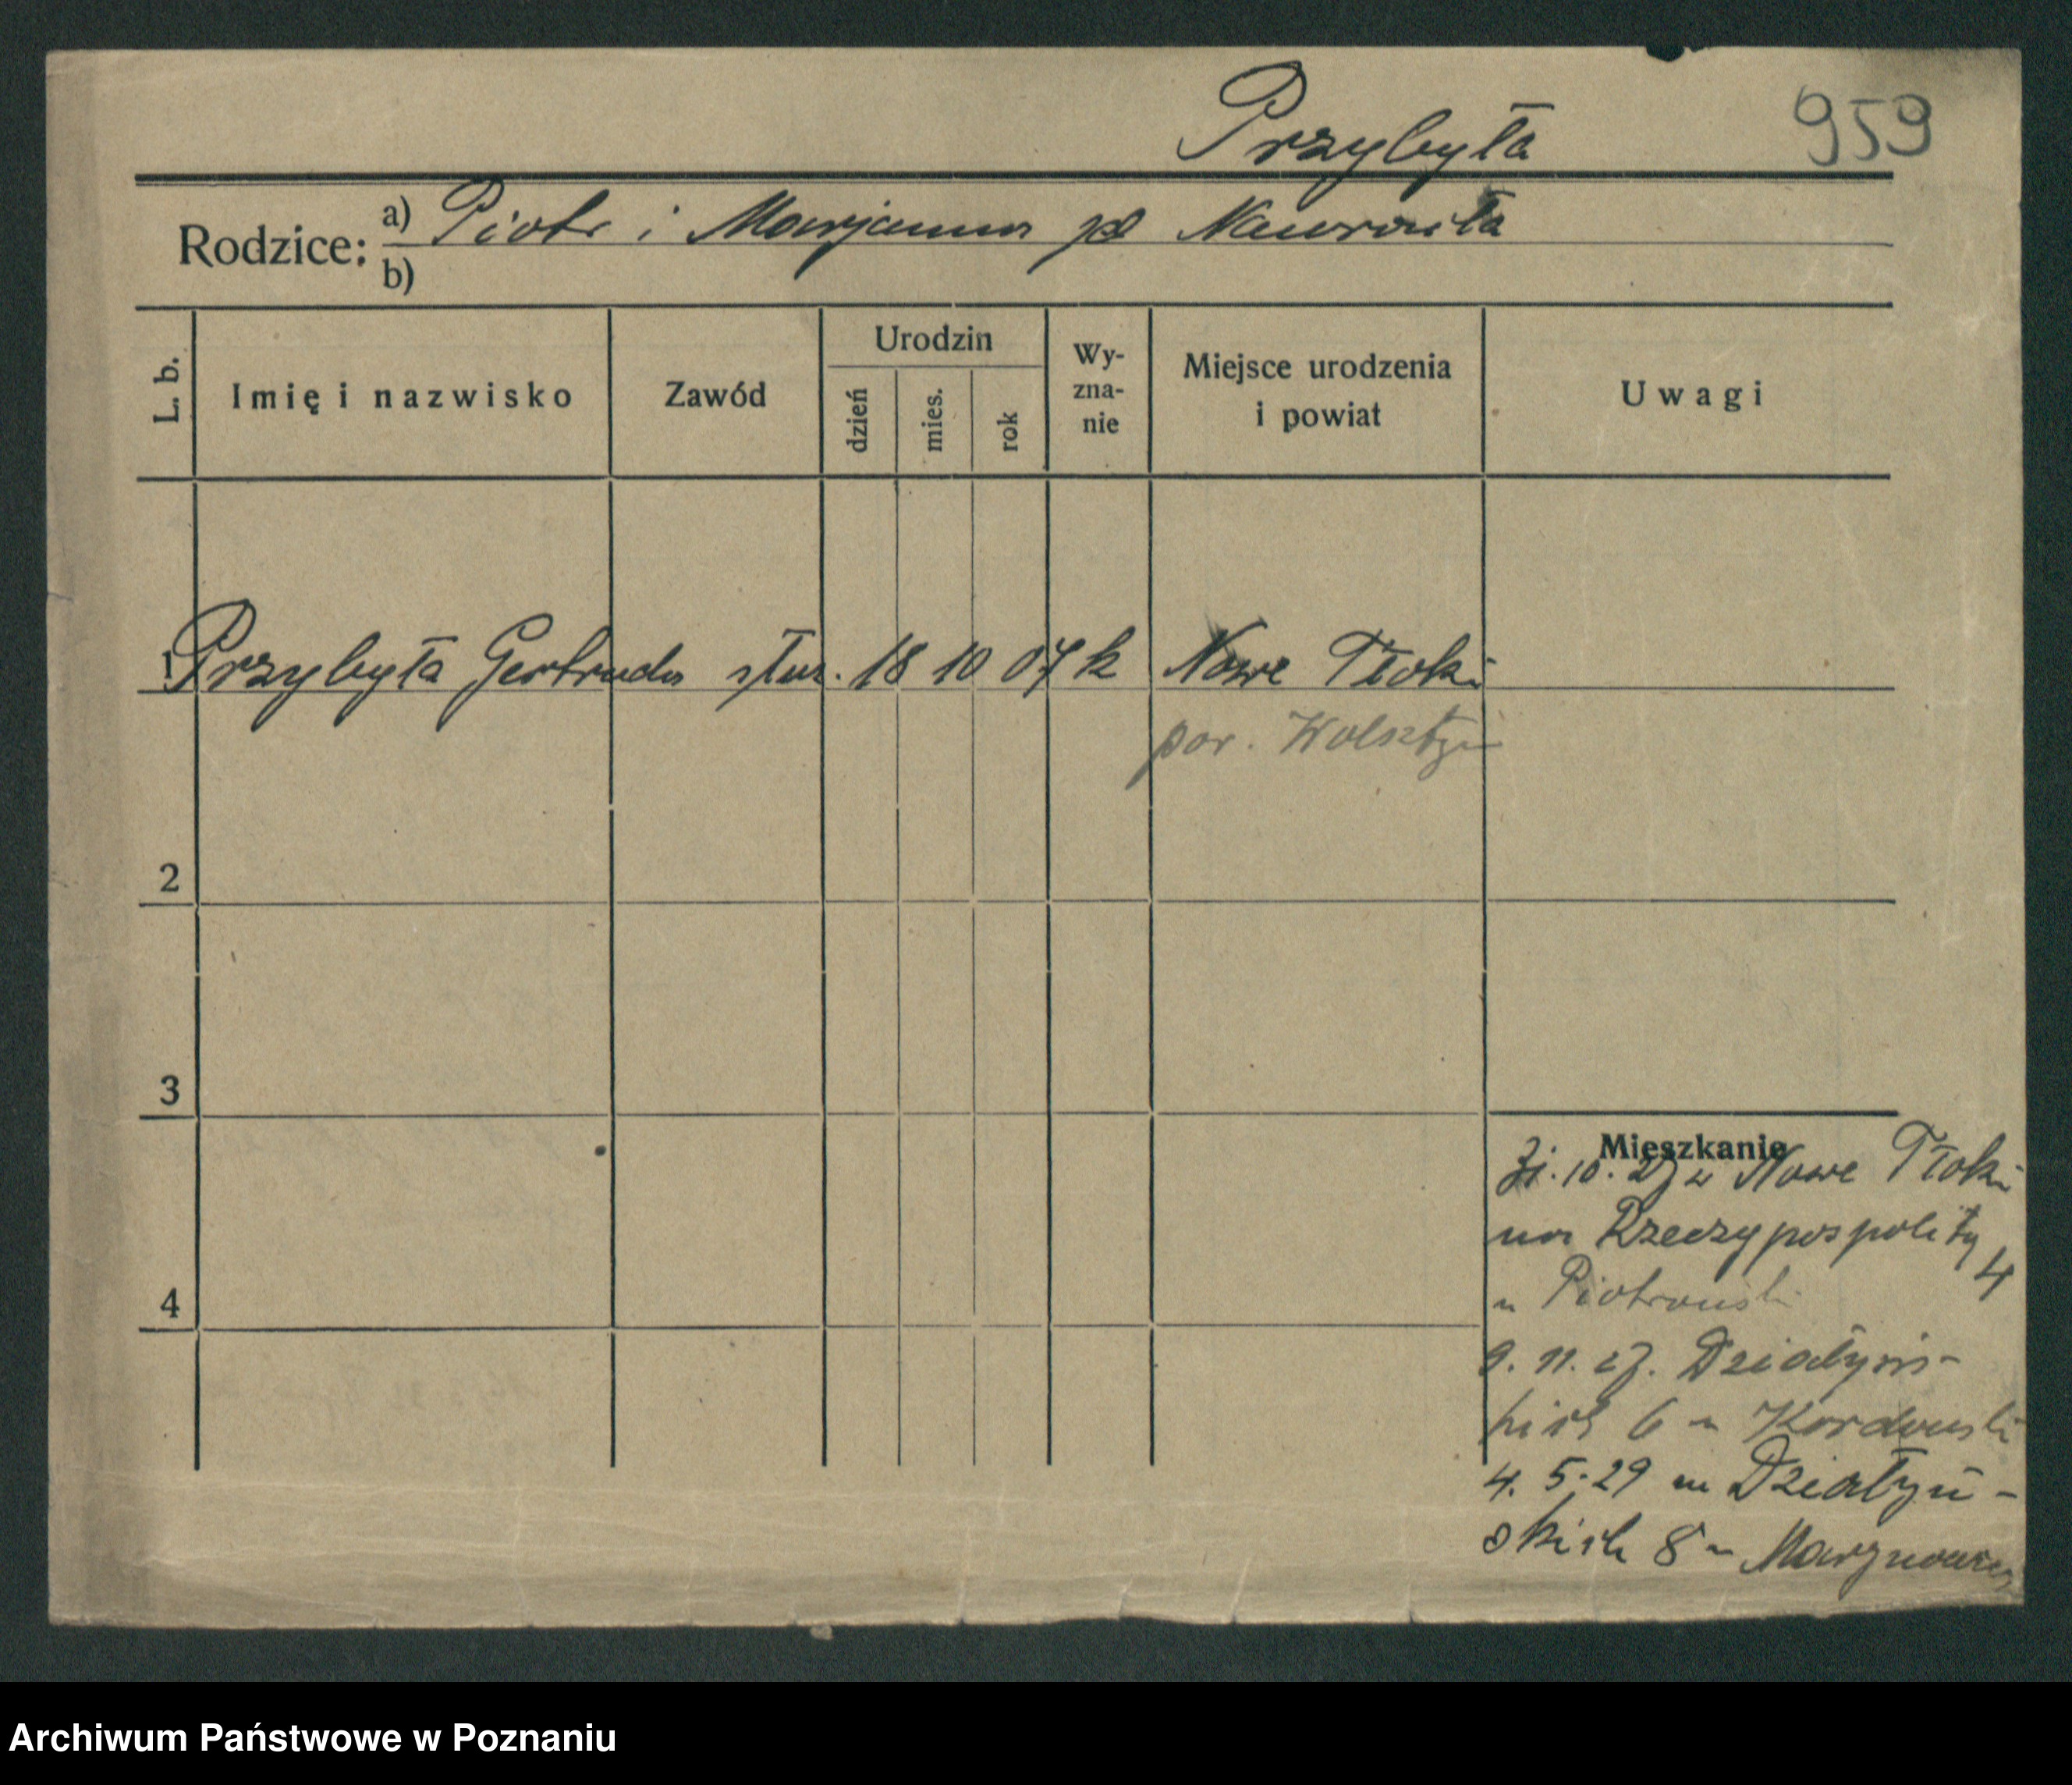 Przybyła 959
Rodzice: a) Piotr i Marjanna zd Nawrauła
b)
L. b. Imię i nazwisko Zawód Urodzin dzień mies. rok Wy-zna-nie Miejsce urodzenia i powiat Uwagi
1 Przybyła Gertruda służ. 18 10 07 k Nowe Tłoki
pow. Wolsztyn
2
3
Mieszkanie
31.10.27 z Nowe Tłoki
na Rzeczypospolity 4
4
u Piotrowski
9.11.27. Działyńs-
kich 6 u Kordowski
4.5.29 na Działyń-
skich 8 u
Archiwum Państwowe w Poznaniu